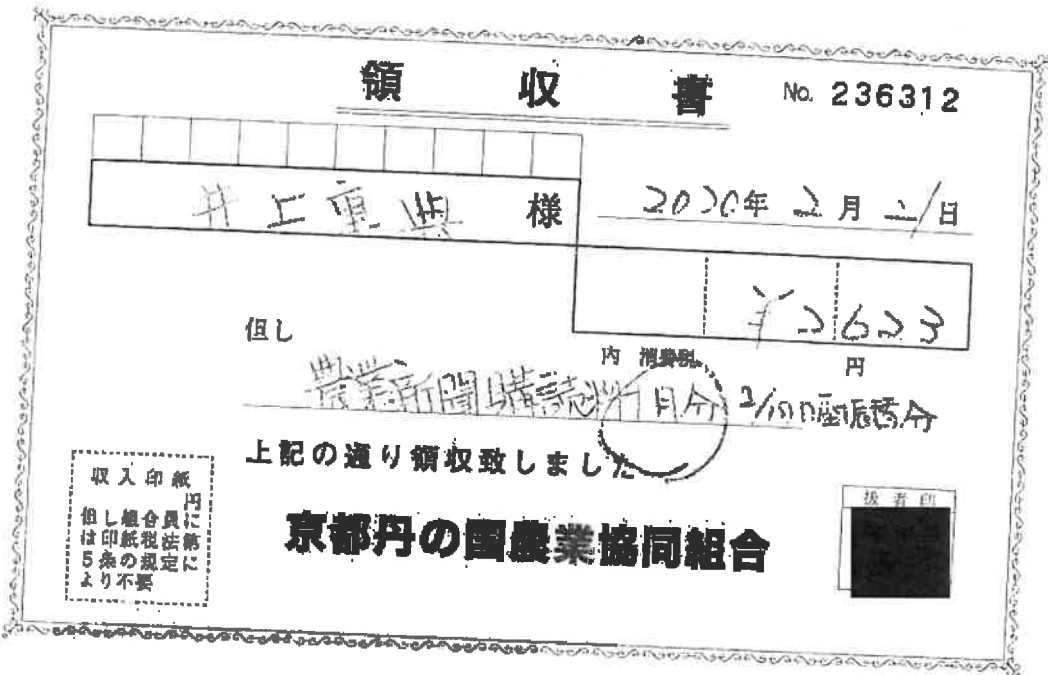 領収書
No. 236312
井上重典 様
2020年2月21日
¥2623
但し
内 消費税
円
農業新聞購読料 月分 2/10口座振替分
上記の通り領収致しました
収入印紙
円
但し組合員に
は印紙税法第
5条の規定に
より不要
京都丹の国農業協同組合
扱者印